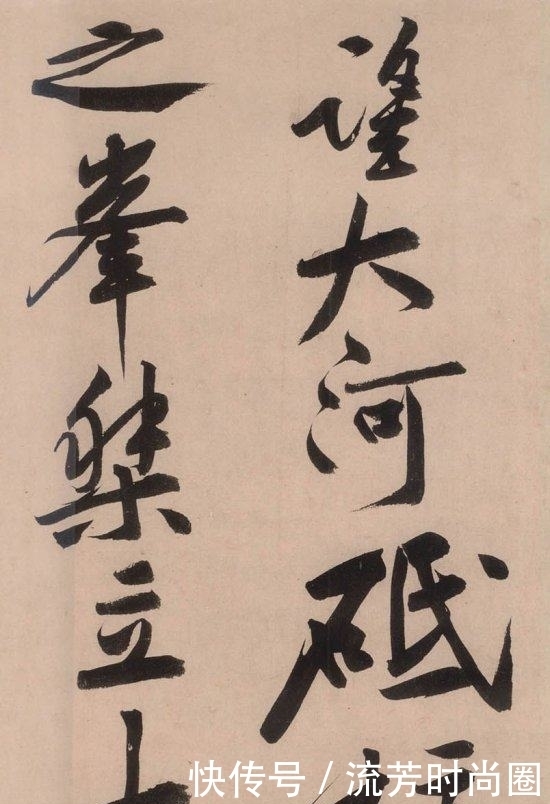 望大河砥
之峯桀立
快传号 / 流芳时尚圈